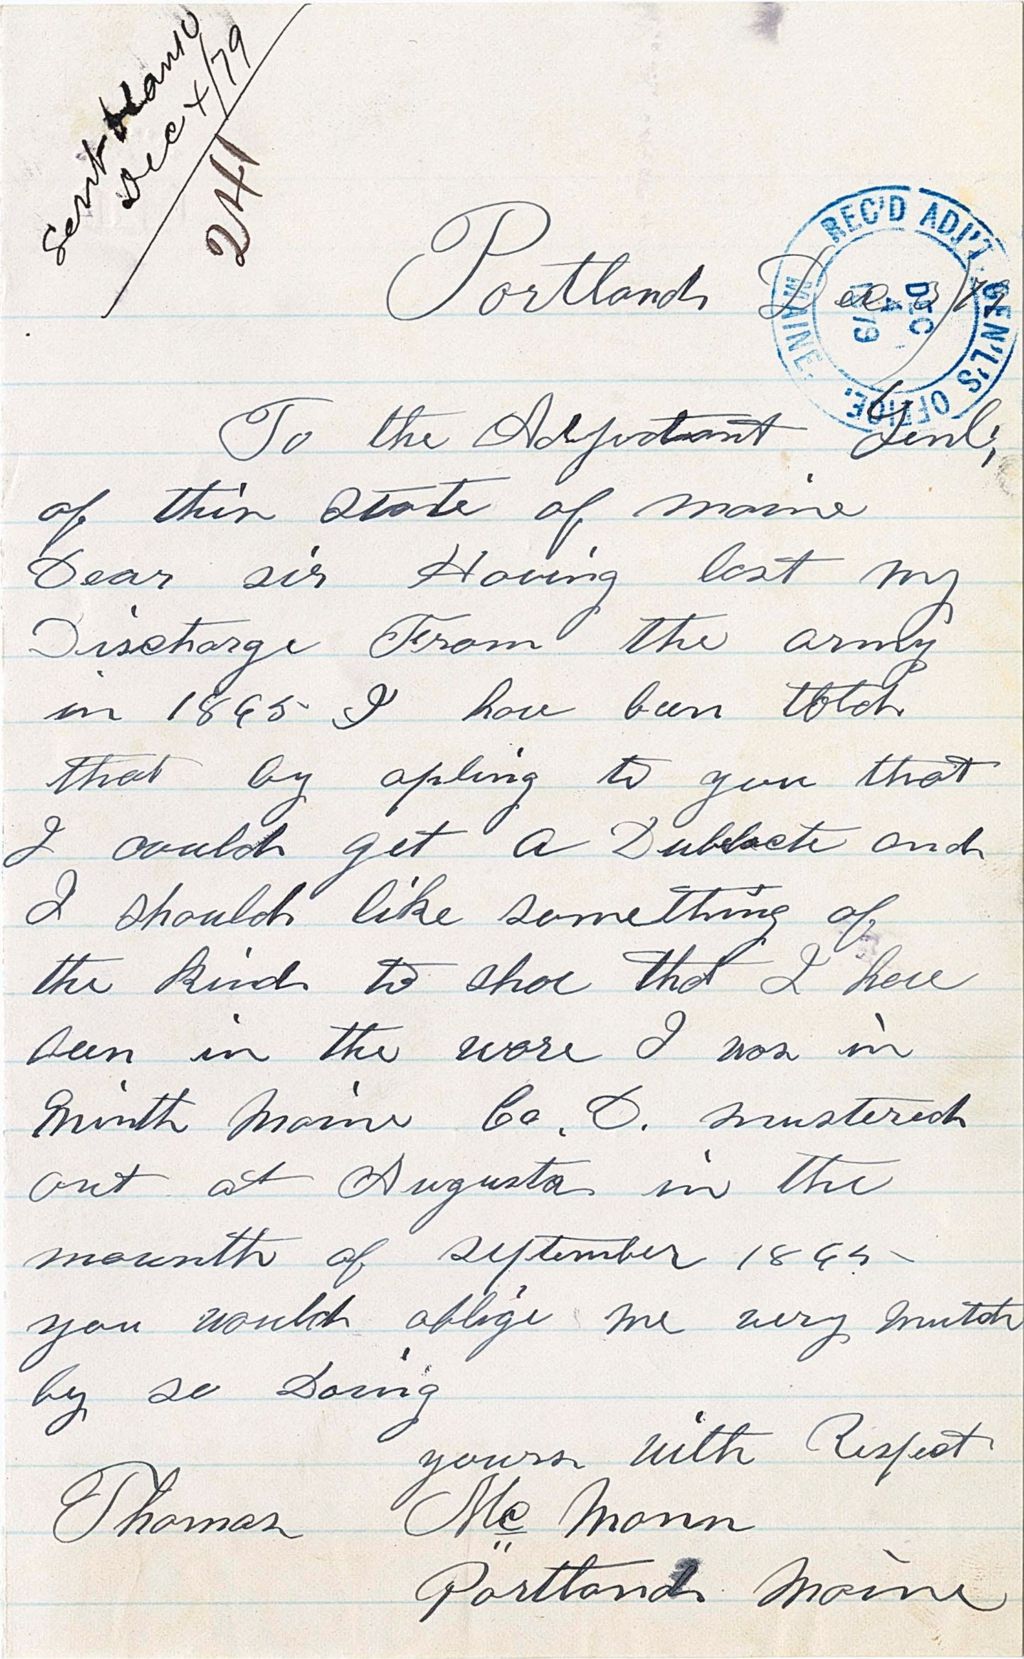 Sent blank
Dec 4/79
241
Portland Dec
REC'D ADJ'T. GEN'L'S OFFICE. MAINE.
DEC
4
1879
To the Adjutant Genl,
of thin State of maine
Dear sir Having lost my
Discharge From the army
in 1865 I have been told
that by apling to you that
I could get a Dublacte and
I should like something of
the kind to shoe that I have
seen in the ware I was in
Ninth Maine Co. D. mustered
out at Augusta in the
mounth of september 1865
you would oblige me very mutch
by so Doing
yours with Respect
Thomas Mc Mann
Portland Maine